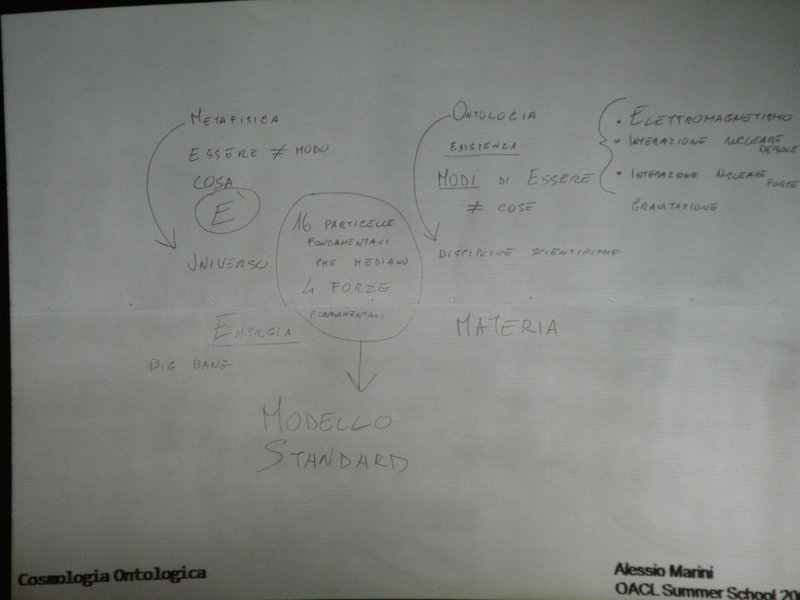 METAFISICA
ESSERE ≠ MODO
COSA
E'
UNIVERSO
ENERGIA
BIG BANG
16 PARTICELLE
FONDAMENTALI
CHE MEDIANO
4 FORZE
FONDAMENTALI
MODELLO
STANDARD
ONTOLOGIA
ESISTENZA
MODI DI ESSERE
≠ COSE
DISCIPLINE SCIENTIFICHE
MATERIA
• ELETTROMAGNETISMO
• INTERAZIONE NUCLEARE
DEBOLE
• INTERAZIONE NUCLEARE
FORTE
GRAVITAZIONE
Cosmologia Ontologica
Alessio Marini
OACL Summer School